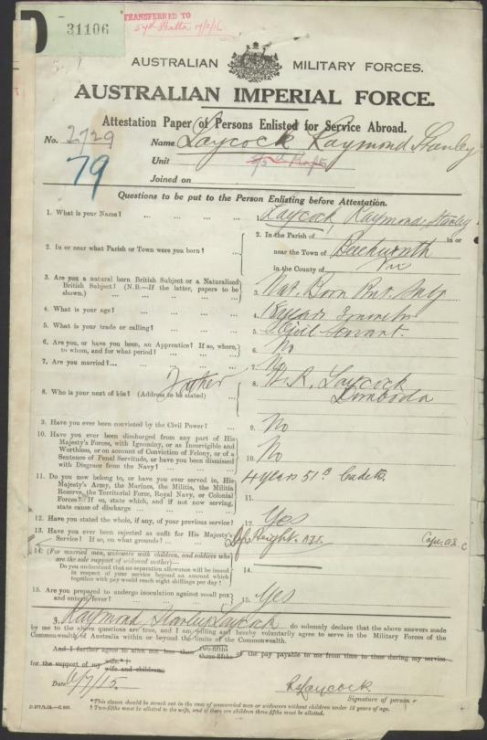 TRANSFERRED TO
31106
AUSTRALIAN MILITARY FORCES.
AUSTRALIAN IMPERIAL FORCE.
Attestation Paper of Persons Enlisted for Service Abroad.
No. 2729 Name Laycock Raymond Stanley
79 Unit
Joined on
Questions to be put to the Person Enlisting before Attestation.
1. What is your Name? 1. Laycock, Raymond Stanley
2. In or near what Parish or Town were you born? 2. In the Parish of in or
near the Town of Beechworth
in the County of Vic
3. Are you a natural born British Subject or a Naturalized
British Subject? (N.B.—If the latter, papers to be
shown.) 3. Nat. Born Brit. Subj
4. What is your age? 4. 18 years
5. What is your trade or calling? 5. Civil Servant.
6. Are you, or have you been, an Apprentice? If so, where,
to whom, and for what period? 6. No
7. Are you married? 7. No
8. Who is your next of kin? (Address to be stated) Father 8. W. R. Laycock
9. Have you ever been convicted by the Civil Power? 9. No
10. Have you ever been discharged from any part of His
Majesty's Forces, with Ignominy, or as Incorrigible and
Worthless, or on account of Conviction of Felony, or of a
Sentence of Penal Servitude, or have you been dismissed
with Disgrace from the Navy? 10. No
11. Do you now belong to, or have you ever served in, His
Majesty's Army, the Marines, the Militia, the Militia
Reserve, the Territorial Force, Royal Navy, or Colonial
Forces? If so, state which, and if not now serving,
state cause of discharge 11. 4 years 51st Cadets
12. Have you stated the whole, if any, of your previous service? 12. Yes
13. Have you ever been rejected as unfit for His Majesty's
Service? If so, on what grounds? 13. Height
14. (For married men, widowers with children, and soldiers who
are the sole support of widowed mother)—
Do you understand that no separation allowance will be issued
in respect of your service beyond an amount which
together with pay would reach eight shillings per day? 14.
15. Are you prepared to undergo inoculation against small pox
and enteric fever? 15. Yes
I, Raymond Stanley Laycock do solemnly declare that the above answers made
by me to the above questions are true, and I am willing and hereby voluntarily agree to serve in the Military Forces of the
Commonwealth of Australia within or beyond the limits of the Commonwealth.
And I further agree to allot not less than two-fifths
three-fifths of the pay payable to me from time to time during my service
for the support of my wife
wife and children.
Date 6/7/15. R S Laycock
Signature of person
*This clause should be struck out in the case of unmarried men or widowers without children under 18 years of age.
† Two-fifths must be allotted to the wife, and if there are children three-fifths must be allotted.